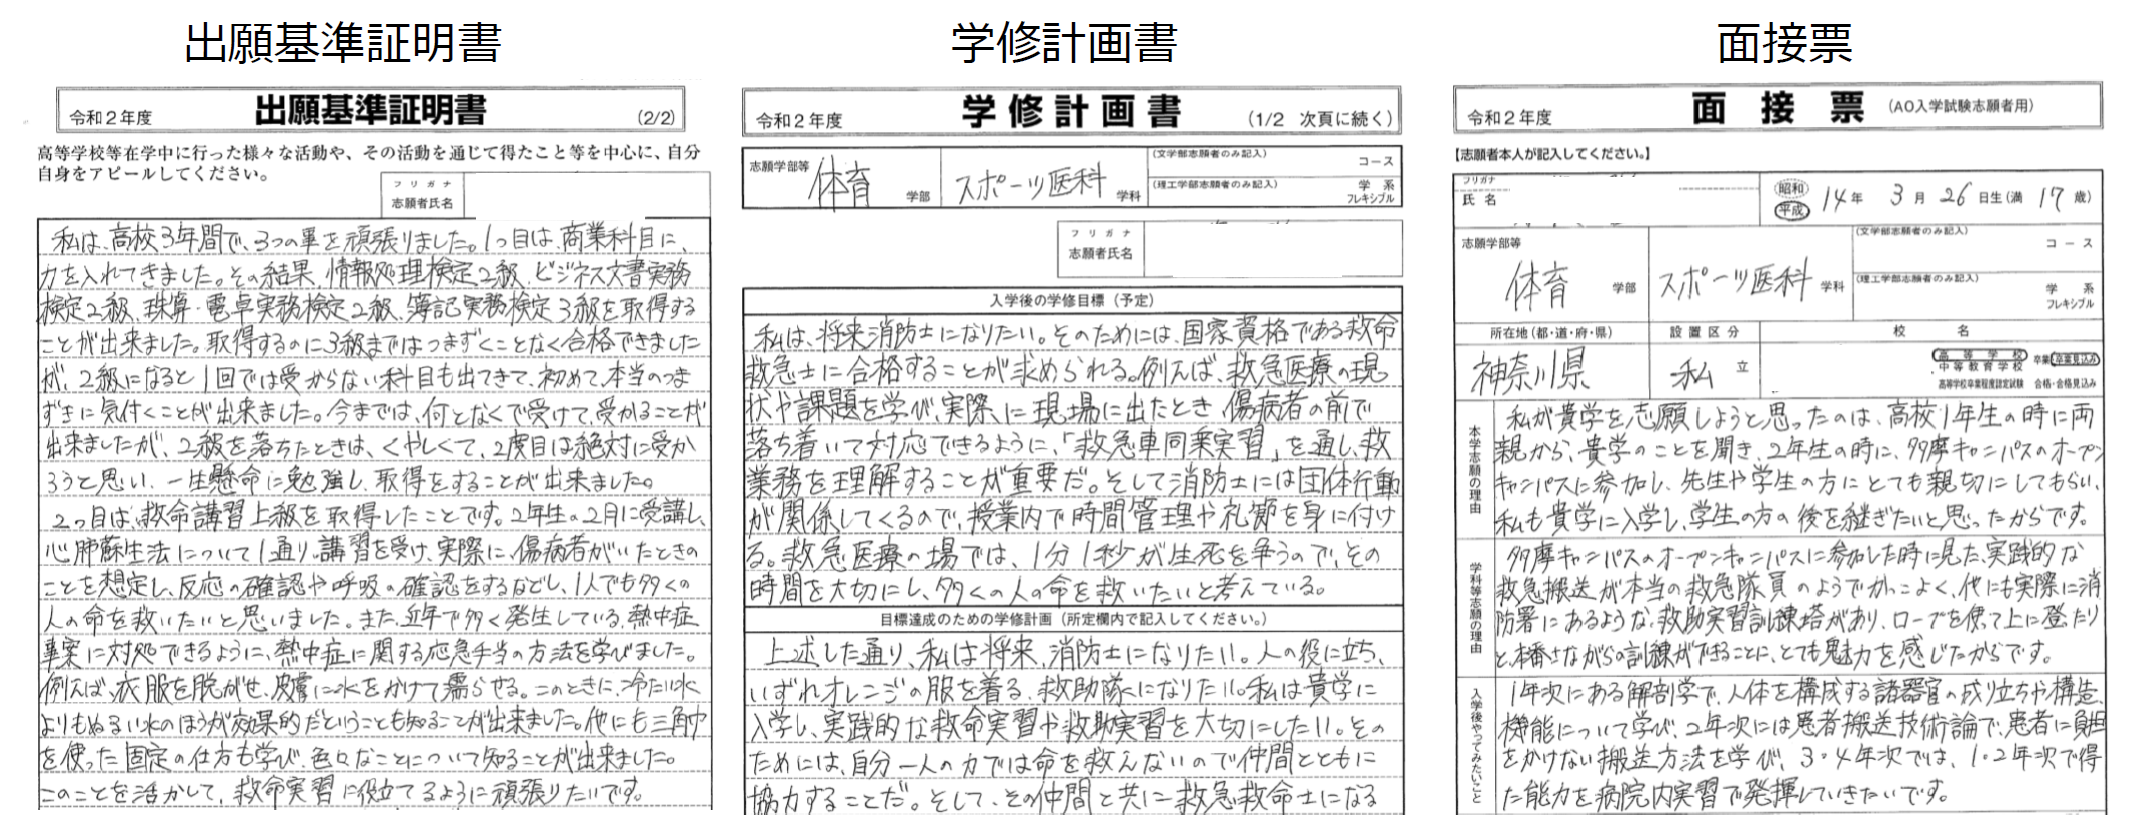 出願基準証明書
令和2年度
出願基準証明書
(2/2)
高等学校等在学中に行った様々な活動や、その活動を通じて得たこと等を中心に、自分
自身をアピールしてください。
フリガナ
志願者氏名
私は、高校3年間で、3つの事を頑張りました。1つ目は、商業科目に、
力を入れてきました。その結果、情報処理検定2級、ビジネス文書実務
検定2級、珠算・電卓実務検定2級、簿記実務検定3級を取得する
ことが出来ました。取得するのに3級まではつまずくことなく合格できました
が、2級になると1回では受からない科目も出てきて、初めて、本当のつま
ずきに気付くことが出来ました。今までは、何となくで受けて、受かることが
出来ましたが、2級を落ちたときは、くやしくて、2度目は絶対に受か
ろうと思い、一生懸命に勉強し、取得をすることが出来ました。
2つ目は、救命講習上級を取得したことです。2年生の2月に受講し、
心肺蘇生法について1通り、講習を受け、実際に、傷病者がいたときの
ことを想定し、反応の確認や呼吸の確認をするなどし、1人でも多くの
人の命を救いたいと思いました。また、近年で多く発生している、熱中症
事案に対処できるように、熱中症に関する応急手当の方法を学びました。
例えば、衣服を脱がせ、皮膚に水をかけて濡らせる。このときに、冷たい水
よりもぬるい水のほうが効果的だということも知ることが出来ました。他にも三角巾
を使った固定の仕方も学び、色々なことについて知ることが出来ました。
このことを活かして、救命実習に役立てるように頑張りたいです。
学修計画書
令和2年度
学修計画書
(1/2 次頁に続く)
志願学部等
体育
学部
スポーツ医科
学科
(文学部志願者のみ記入)
コース
(理工学部志願者のみ記入)
学 系
フレキシブル
フリガナ
志願者氏名
入学後の学修目標(予定)
私は、将来消防士になりたい。そのためには、国家資格である救命
救急士に合格することが求められる。例えば、救急医療の現
状や課題を学び、実際に現場に出たとき、傷病者の前で
落ち着いて対応できるように、「救急車同乗実習」を通し、救
業務を理解することが重要だ。そして消防士には団体行動
が関係してくるので、授業内で時間管理や礼節を身に付け
る。救急医療の場では、1分1秒が生死を争うので、その
時間を大切にし、多くの人の命を救いたいと考えている。
目標達成のための学修計画(所定欄内で記入してください。)
上述した通り、私は将来、消防士になりたい。人の役に立ち、
いずれオレンジの服を着る、救助隊になりたい。私は貴学に
入学し、実践的な救命実習や救助実習を大切にしたい。その
ためには、自分一人の力では命を救えないので仲間とともに
協力することだ。そして、その仲間と共に救急救命士になる
面接票
令和2年度
面接票
(AO入学試験志願者用)
【志願者本人が記入してください。】
フリガナ
氏名
昭和
平成
14年 3月 26日生(満 17歳)
志願学部等
体育
学部
スポーツ医科
学科
(文学部志願者のみ記入)
コース
(理工学部志願者のみ記入)
学 系
フレキシブル
所在地(都・道・府・県)
設置区分
校名
神奈川県
私
立
高等学校
中等教育学校
卒業・卒業見込み
高等学校卒業程度認定試験 合格・合格見込み
本学志願の理由
私が貴学を志願しようと思ったのは、高校1年生の時に両
親から、貴学のことを聞き、2年生の時に、多摩キャンパスのオープン
キャンパスに参加し、先生や学生の方にとても親切にしてもらい、
私も貴学に入学し、学生の方の後を継ぎたいと思ったからです。
学科等志願の理由
多摩キャンパスのオープンキャンパスに参加した時に見た、実践的な
救急搬送が本当の救急隊員のようでかっこよく、他にも実際に消
防署にあるような、救助実習訓練塔があり、ロープを使って上に登たり
と、本番さながらの訓練ができることに、とても魅力を感じたからです。
入学後やってみたいこと
1年次にある解剖学で、人体を構成する諸器官の成り立ちや構造、
機能について学び、2年次には患者搬送技術論で、患者に負担
をかけない搬送方法を学び、3・4年次では、1・2年次で得
た能力を病院内実習で発揮していきたいです。